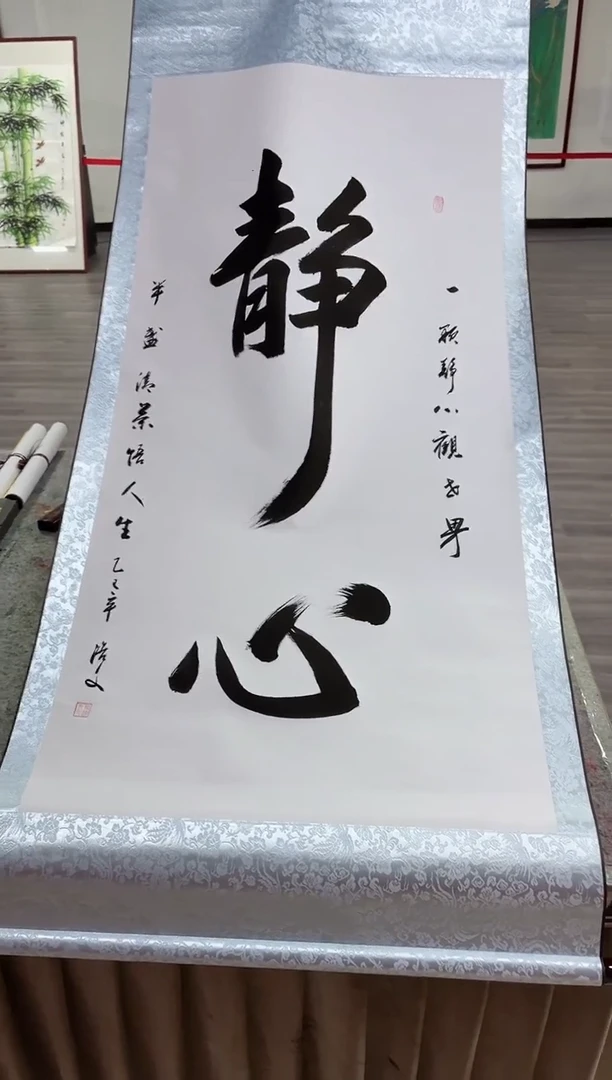 静心
一颗静心觀世界
半盏清茶悟人生
乙巳年 浩文